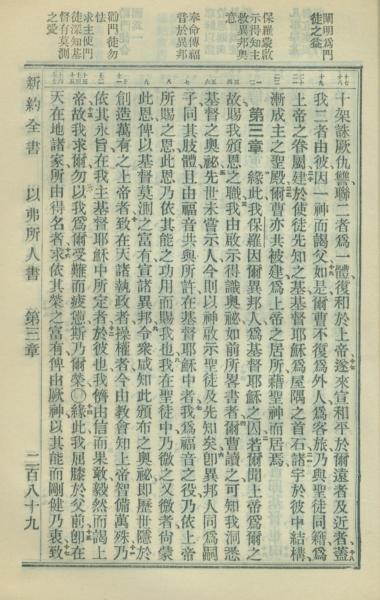 闡明為門
徒之益
保羅蒙啟
示得知主
救異邦奧
意
奉命傳福
音於異邦
勸門徒勿
怯
求主使門
徒深知基
督有莫測
之愛
十架誅厥仇讐聯二者為一體復和於上帝遂來宣和平於爾遠者及近者蓋
我二者由彼因一神而謁父如是爾曹不復為外人為客旅乃與聖徒同籍為
上帝之眷屬建於使徒先知之基基督耶穌為屋隅之首石諸宇於彼中結構
漸成主之聖殿爾曹亦共被建為上帝之居所藉聖神而居焉
第三章 緣此我保羅因爾異邦人為基督耶穌之囚若爾聞上帝為爾之
故賜我頒恩之職我由啟示得識奧祕如前所畧書者爾曹讀之可知我洞悉
基督之奧祕先世未嘗示人今則以神啟示聖徒及先知矣卽異邦人同為嗣
子同其肢體且由福音共與所許在基督耶穌中者我為福音之役乃依上帝
所賜之恩此恩乃依其能之功用而賜我也我在聖徒中乃微之又微者尙蒙
此恩俾以基督莫測之富有宣諸異邦令衆咸知此頒布之奧祕卽歷世隱於
創造萬有之上帝者致在天諸執政者操權者今由教會知上帝智備萬殊乃
依其永旨在我主基督耶穌中所定者於彼也我儕由信而果敢毅然而謁上
帝故我求爾勿以我為爾受難而疲憊斯乃爾榮〇緣此我屈膝於父前卽在
天在地諸家所由得名者求依其榮之富有俾由厥神以其能而剛健乃衷致
新約全書 以弗所人書 第三章 二百八十九